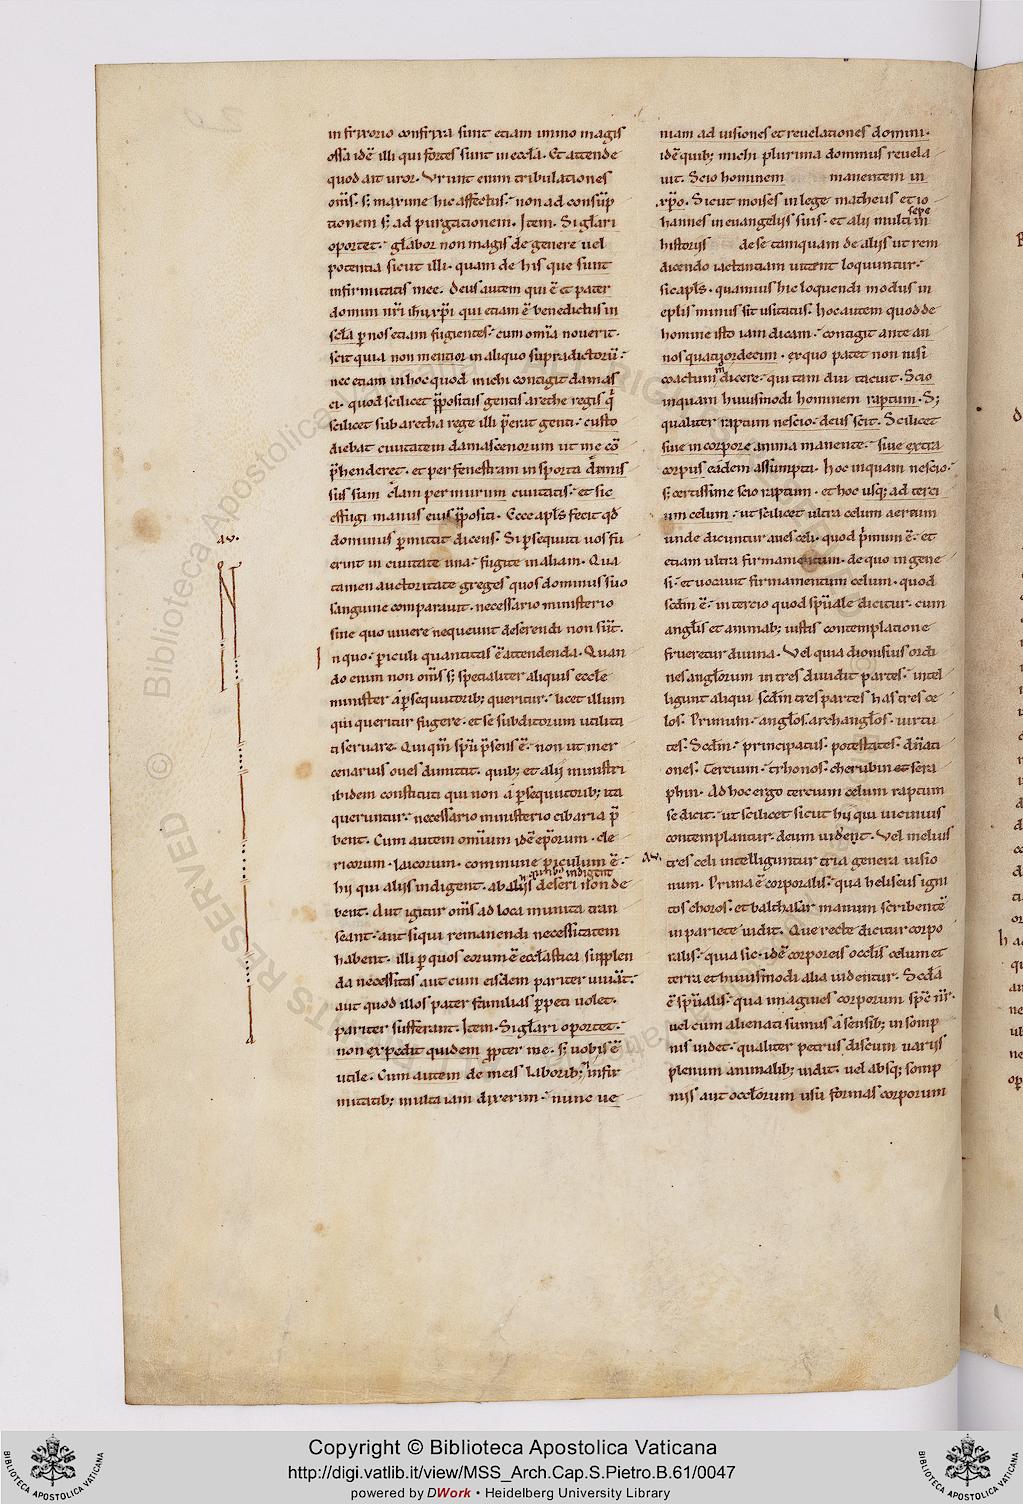 in frixorio confrixa sunt etiam immo magis
ossa idē illi qui fortes sunt in eccła. Et attende
quod ait uror. Vrunt enim tribulationes
om̄s. s; maxime hic affectus. non ad consūp
tionem s; ad purgationem. Item. Si głari
oportet. głabor non magis de genere uel
potentia sicut illi. quam de his que sunt
infirmitatis mee. Deus autem qui ē et pater
domini nr̄i ih̄u xp̄i qui etiam ē benedictus in
scła p nos etiam fugientes. cum omīa nouerit.
scit quia non mentior in aliquo supradictorū.
nec etiam in hoc quod michi contigit damas
ci. quod scilicet p̄positus gentis arethe regis. q̄
scilicet sub aretha rege illi p̄erat genti. custo
diebat ciuitatem damascenorum ut me cō
p̄henderet. et per fenestram in sporta dimis
sus sum clam per murum ciuitatis. et sic
effugi manus eius p̄positi. Ecce apłs fecit qđ
dominus pmittit dicens. Si psequuti uos fu
erint in ciuitate una. fugite in aliam. Qua
tamen auctoritate greges quos dominus suo
sanguine comparauit. necessario ministerio
sine quo uiuere nequeunt deserendi non sūt.
In quo. piculi quantitas ē attendenda. Quan
do enim non om̄s s; specialiter aliquis eccłe
minister a psequutorib; queritur. licet illum
qui queritur fugere. et se subditorum utilita
ti seruare. Qui qm̄ spū p̄sens ē. non ut mer
cenarius oues dimittit. quib; et alij ministri
ibidem constituti qui non a psequutorib; ita
queruntur. necessario ministerio cibaria p̄
bent. Cum autem omīum idē ep̄orum. cle
ricorum. laicorum. commune piculum ē.
hij qui alijs indigent. ab alijs quibus indigent deseri non de
bent. Aut igitur om̄s ad loca munita tran
seant. aut si qui remanendi necessitatem
habent. illi p quos eorum ē eccłastica supplen
da necessitas aut cum eisdem pariter uiuāt.
aut quod illos pater familias ppeti uolet.
pariter sufferant. Item. Si głari oportet.
non expedit quidem ppter me. s; uobis ē
utile. Cum autem de meis laborib; infir
mitatib; multa iam dixerim. nunc ue
niam ad uisiones et reuelationes domini.
idē quib; michi plurima dominus reuela
uit. Scio hominem manentem in
xp̄o. Sicut moises in lege matheus et io
hannes in euangelijs suis. et alij multi in sepe
historijs de se tamquam de alijs ut rem
dicendo iactantiam uitent loquuntur.
sic apłs. quamuis hic loquendi modus in
eplis minus sit usitatus. hoc autem quod de
homine isto iam dicam. contigit ante an
nos quatuordecim. ex quo patet non nisi
coactum dicere. qui tam diu tacuit. Scio
inquam huiusmodi hominem raptum. S;
qualiter raptum nescio. deus scit. Scilicet
siue in corpore anima manente. siue extra
corpus eadem assumpta. hoc inquam nescio.
s; certissime scio raptum. et hoc usq; ad terci
um celum. ut scilicet ultra celum aerium
unde dicuntur aues celi. quod p̄mum ē. et
etiam ultra firmamentum. de quo in gene
si. et uocauit firmamentum celum. quod
scdm̄ ē. in tercio quod spūale dicitur. cum
angłis et animab; iustis contemplatione
frueretur diuina. Vel quia dionisius ordi
nes angłorum in tres diuidit partes. intel
ligunt aliqui scdm̄ tres partes has tres ce
los. Primum. angłos. archangłos. uirtu
tes. Scdm̄. principatus. potestates. dnati
ones. Tercium. trhonos. cherubin et sera
phin. Ad hoc ergo tercium celum raptum
se dicit. ut scilicet sicut hij qui uicinius
contemplantur. deum uideret. Vel melius
tres celi intelliguntur tria genera uisio
num. Prima ē corporalis. qua heliseus igni
tos choros. et balthasar manum scribentē
in pariete uidit. Que recte dicitur corpo
ralis. quia sic. idē corporeis occłis celum et
terra et huiusmodi alia uidentur. Scda
ē spūalis. qua imagines corporum
uel cum alienati sumus a sensib; in somp
nis uidet. qualiter petrus discum uarijs
plenum animalib; uidit. uel absq; somp
nijs aut occłorum usu formas corporum
Copyright © Biblioteca Apostolica Vaticana
http://digi.vatlib.it/view/MSS_Arch.Cap.S.Pietro.B.61/0047
powered by DWork • Heidelberg University Library